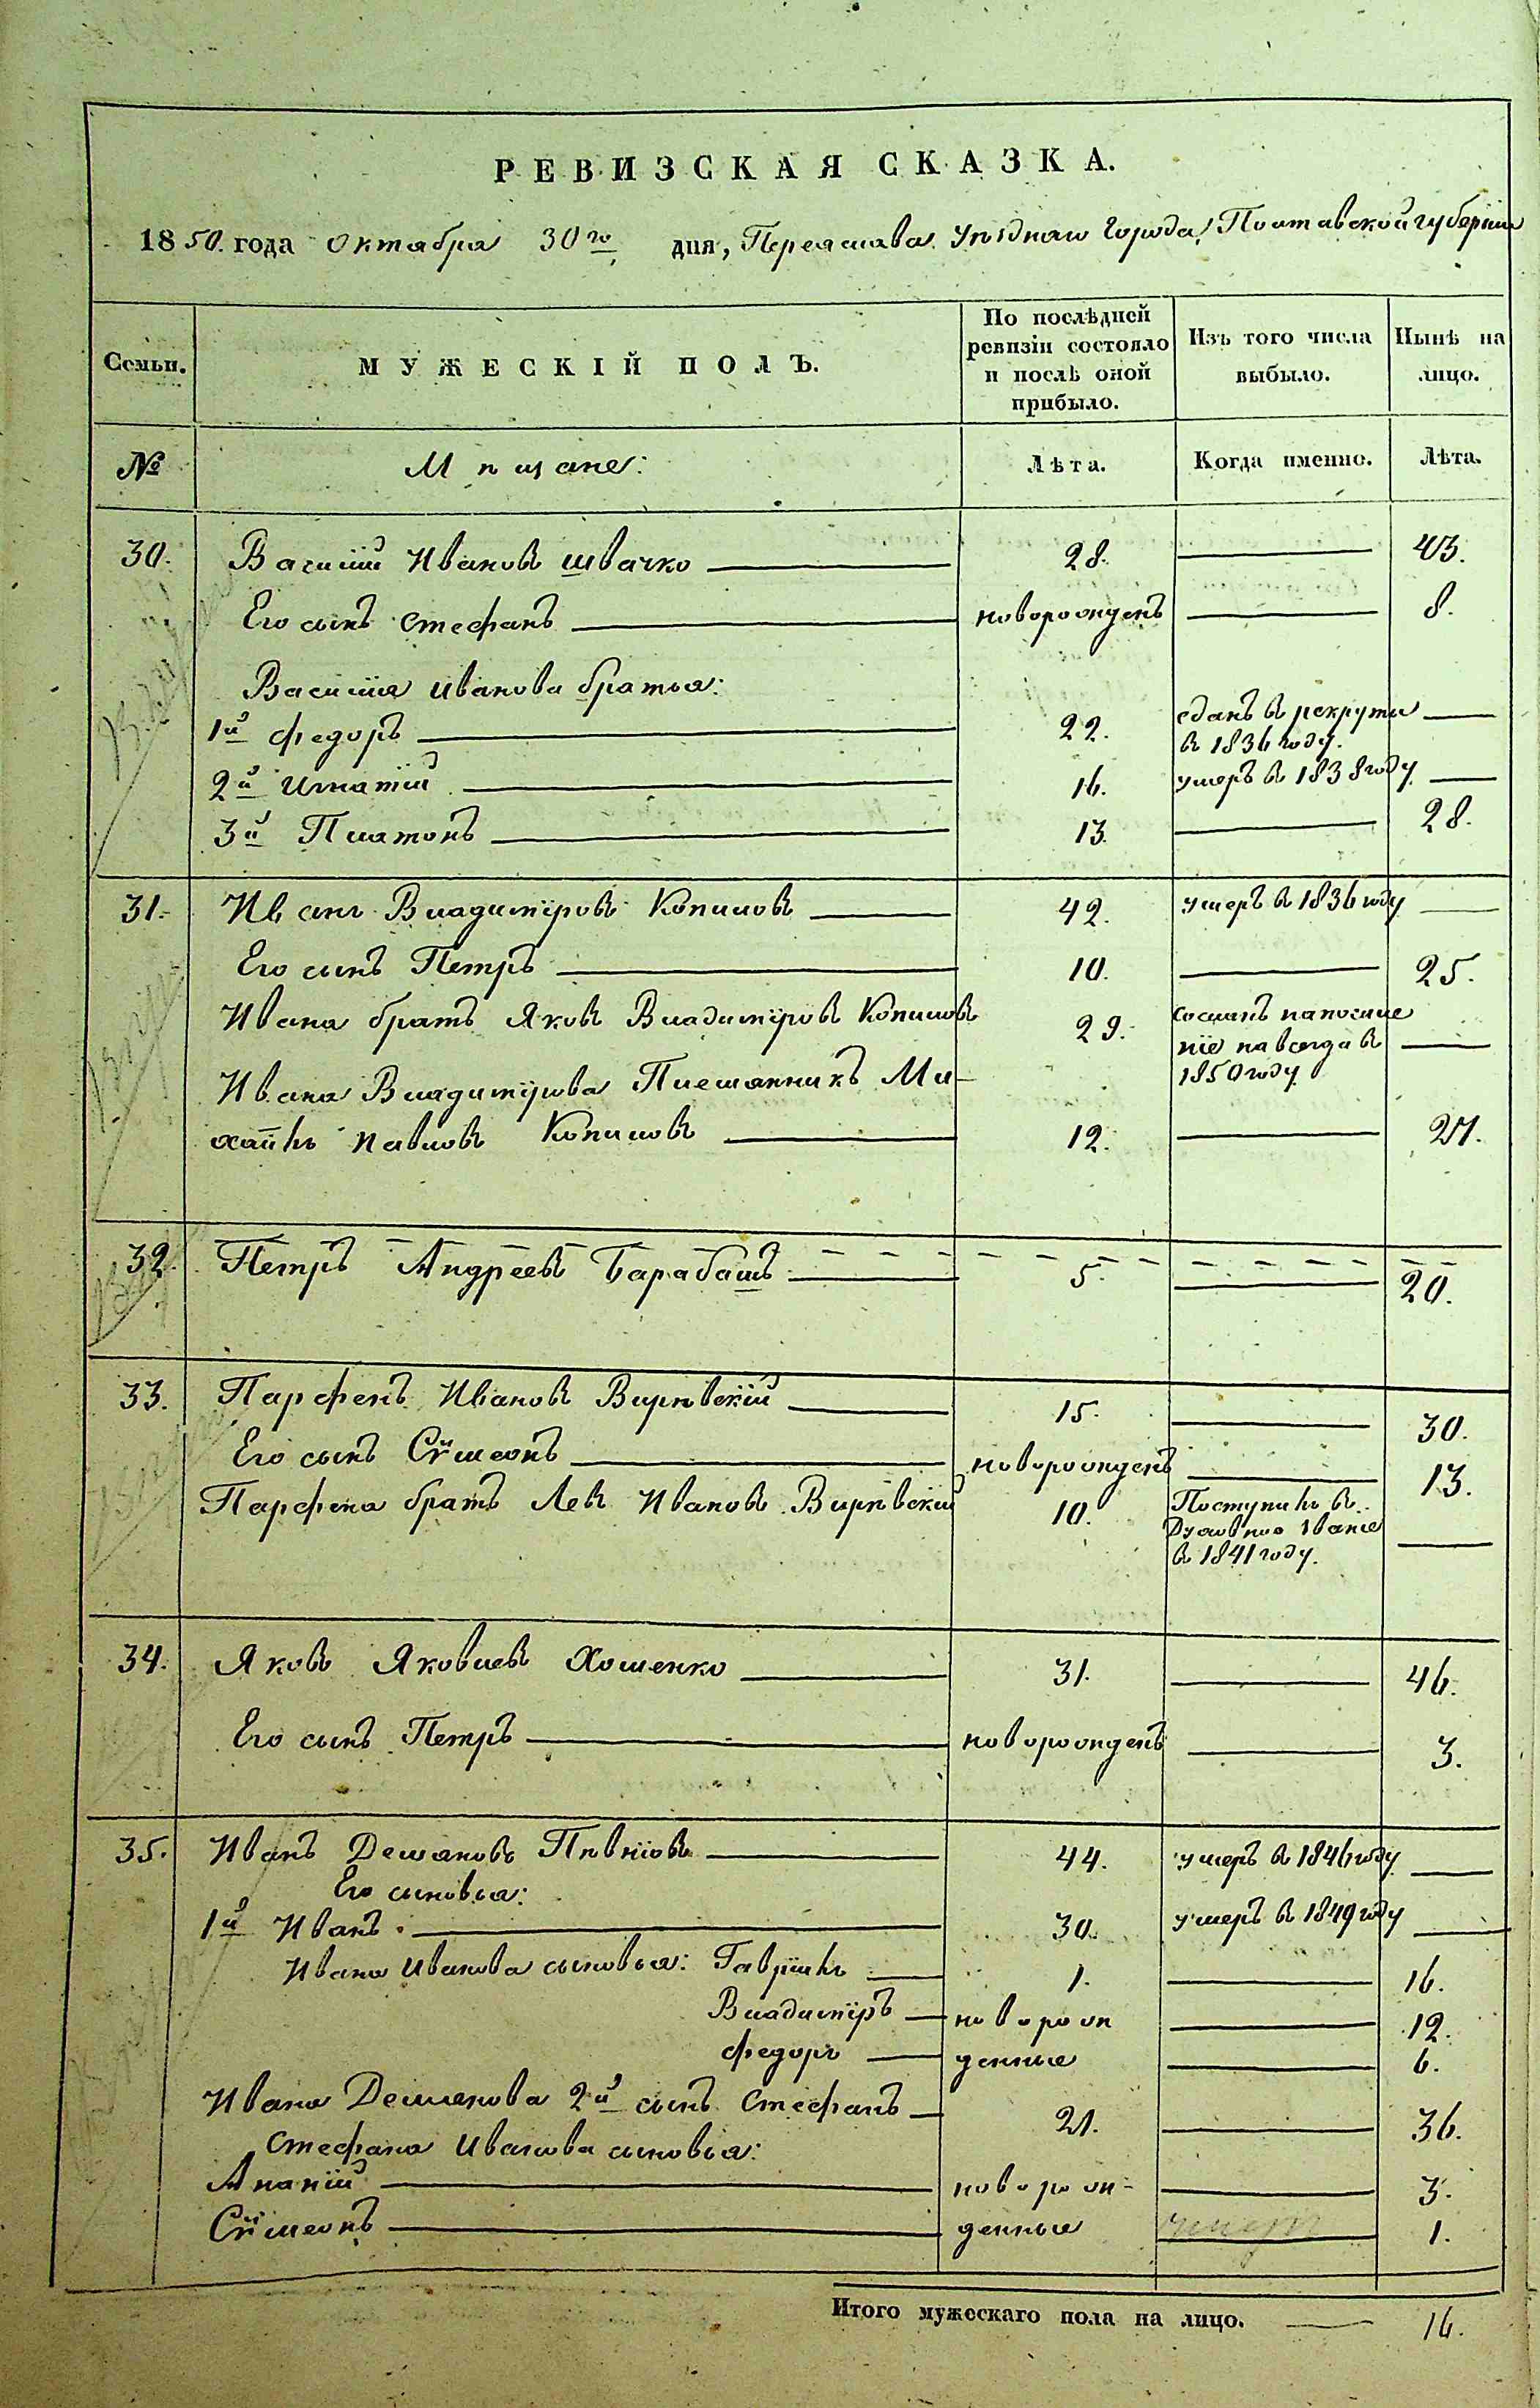 РЕВИЗСКАЯ СКАЗКА.
1850. года Октября 30го дня, Переяслава Уѣзднаго Города, Полтавской губерніи
Семьи.
МУЖЕСКІЙ ПОЛЪ.
По послѣдней
ревизіи состояло
и послѣ оной
прибыло.
Изъ того числа
выбыло.
Нынѣ на
лицо.
№
Мѣщане:
Лѣта.
Когда именно.
Лѣта.
30. Василій Ивановъ Швачко 28. 43.
Его сынъ Стефанъ новорожденъ 8.
Василія Иванова братья:
1й Федоръ 22. сданъ в рекруты
в 1836 году.
2й Игнатій 16. умеръ в 1838 году
3й Платонъ 13. 28.
31. Иванъ Владиміровъ Копиловъ 42. умеръ в 1836 году
Его сынъ Петръ 10. 25.
Ивана братъ Яковъ Владиміровъ Копиловъ 29. Сосланъ на поселе
ніе навсегда в
1850 году
Ивана Владимірова Племянникъ Ми-
хаилъ Павловъ Копиловъ 12. 27.
32. Петръ Андреевъ Барабашъ 5. 20.
33. Парфенъ Ивановъ Вирѣвскій 15. 30.
Его сынъ Сѵмеонъ новорожденъ 13.
Парфена братъ Левъ Ивановъ Вирѣвскій 10. Поступилъ в
Духовное званіе
в 1841 году.
34. Яковъ Яковлевъ Хоменко 31. 46.
Его сынъ Петръ новорожденъ 3.
35. Иванъ Демяновъ Пѣвнювъ 44. умеръ в 1846 году
Его сыновья:
1й Иванъ 30. умеръ в 1849 году
Ивана Иванова сыновья: Гавріилъ 1. 16.
Владиміръ новорож 12.
Федоръ денные 6.
Ивана Демянова 2й сынъ Стефанъ 21. 36.
Стефана Иванова сыновья:
Ананій новорож- 3.
Сѵмеонъ денные умер 1.
Итого мужескаго пола на лицо. 16.